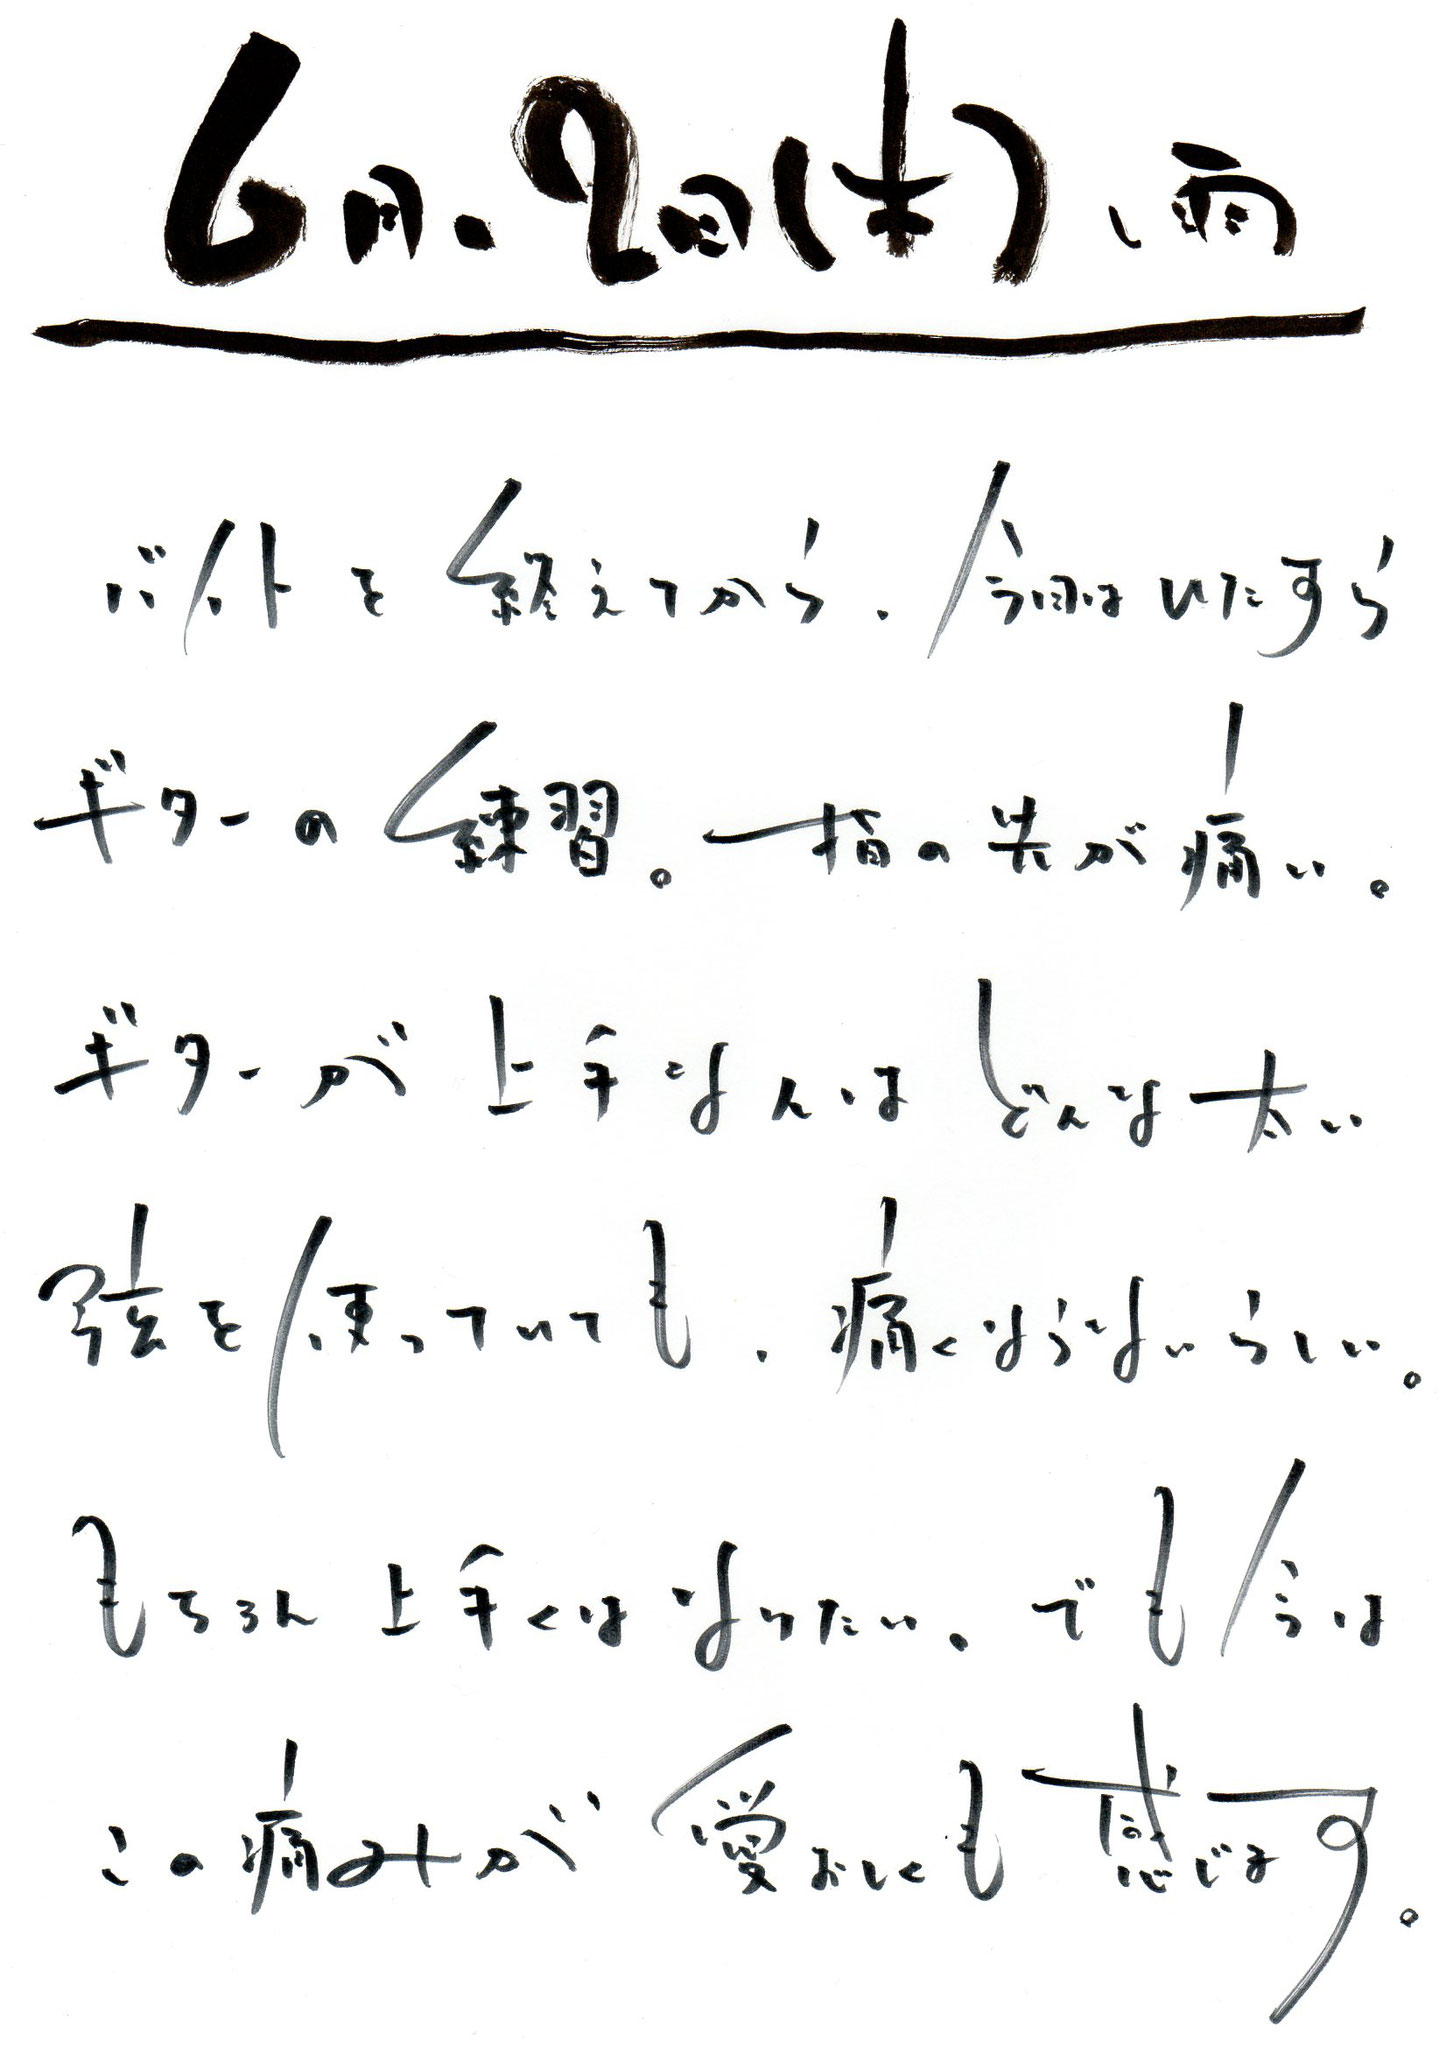 6月、2日(木)、雨
バイトを終えてから、今日はひたすら
ギターの練習。指の先が痛い。
ギターが上手な人はどんな太い
弦を使っていても、痛くならないらしい。
もちろん上手くはなりたい。でも今は
この痛みが愛おしくも感じます。